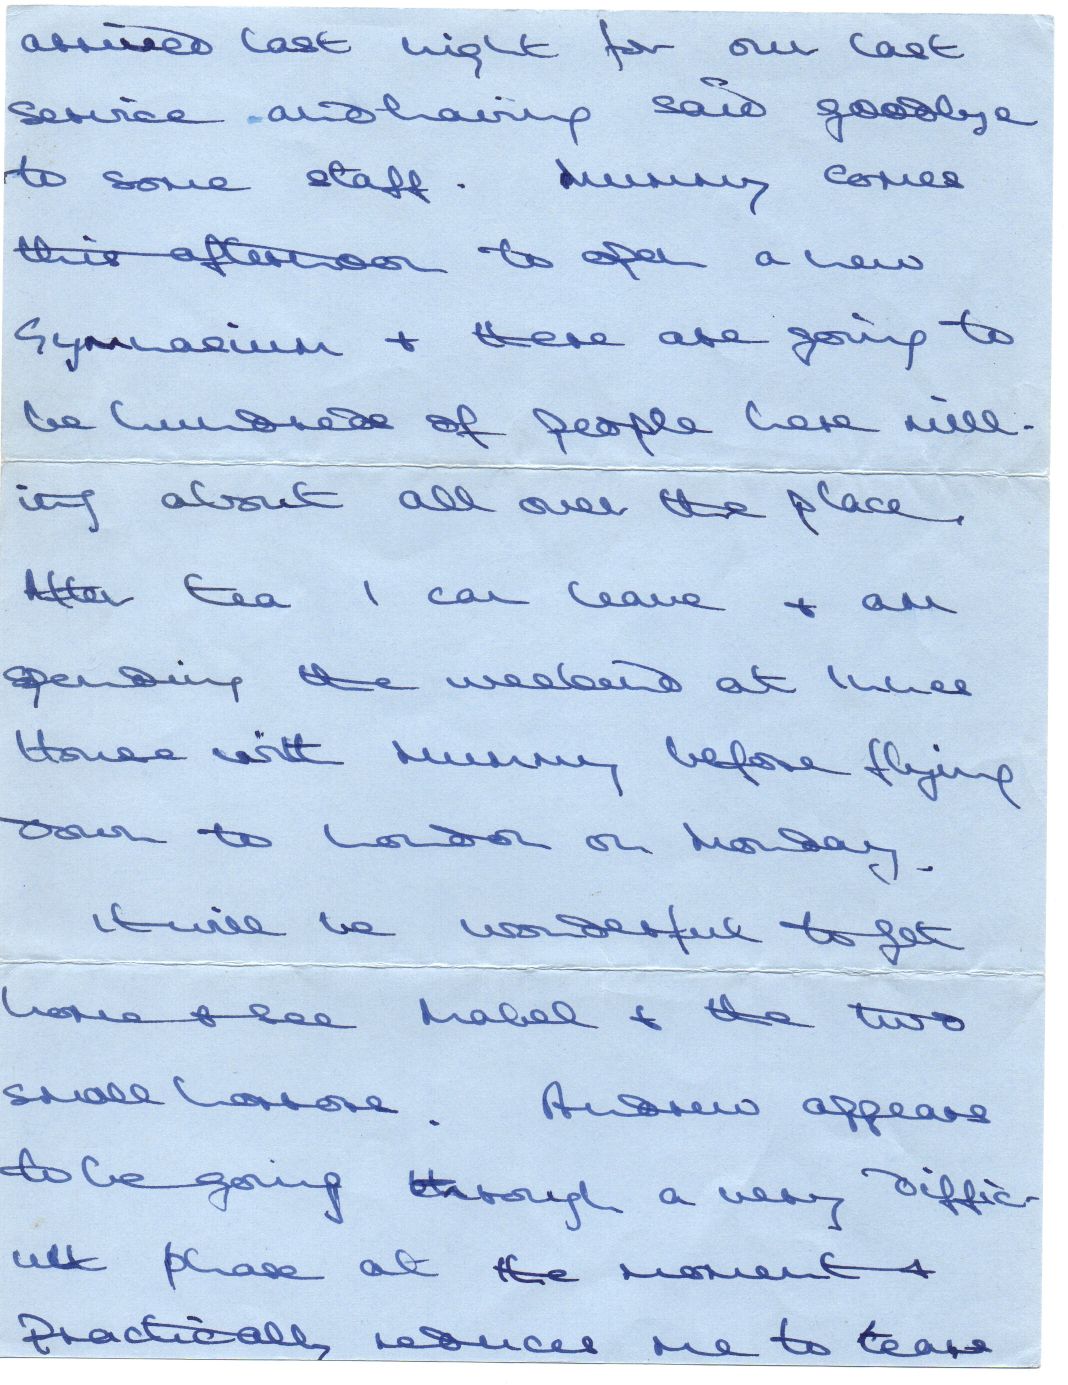 arrived last night for our last
service and having said goodbye
to some staff. Mummy comes
this afternoon to open a new
Gymnasium + there are going to
be hundreds of people here mill-
ing about all over the place.
After tea I can leave + am
spending the weekend at
House with Mummy before flying
down to London on Monday.
It will be wonderful to get
home + see Mabel + the two
small horrors. Andrew appears
to be going through a very diffic-
ult phase at the moment +
practically reduces me to tears